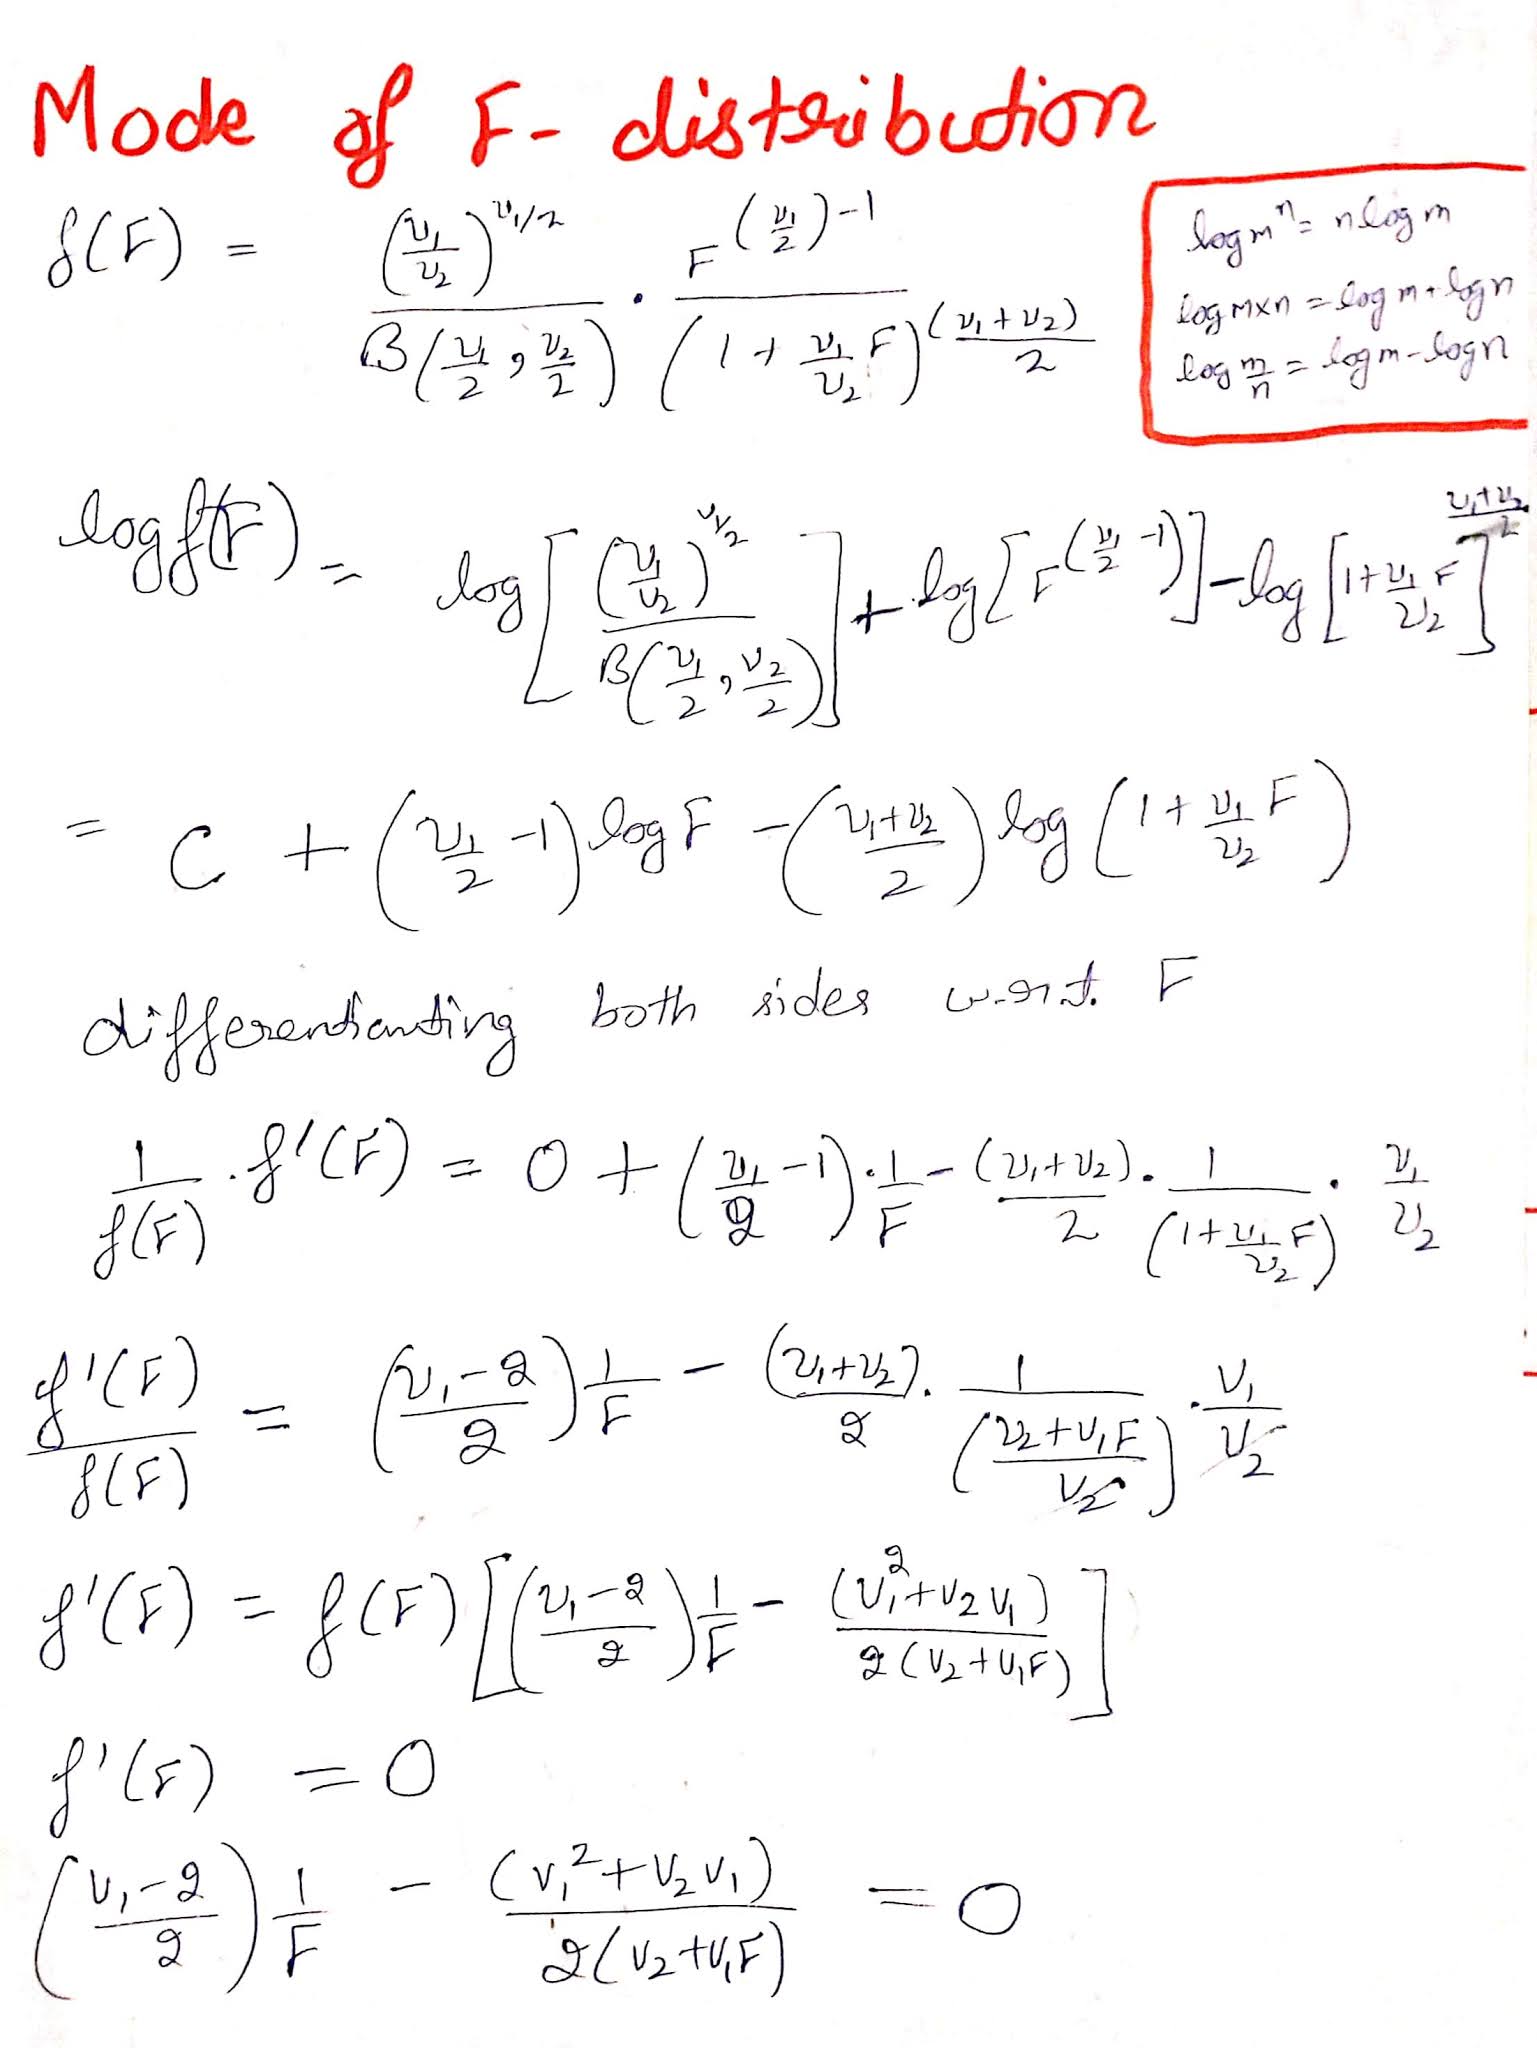 Mode of F- distribution
f(F) = (ν₁/ν₂)^(ν₁/2) / B(ν₁/2 , ν₂/2) . F^((ν₁/2)-1) / (1 + ν₁/ν₂ F)^((ν₁+ν₂)/2)
log mⁿ = n log m
log m×n = log m + log n
log m/n = log m - log n
log f(F) = log [ (ν₁/ν₂)^(ν₁/2) / B(ν₁/2 , ν₂/2) ] + log [ F^(ν₁/2 -1) ] - log [ 1 + ν₁/ν₂ F ]^((ν₁+ν₂)/2)
= C + (ν₁/2 -1) log F - (ν₁+ν₂/2) log (1 + ν₁/ν₂ F)
differentianting both sides w.r.t. F
1/f(F) . f'(F) = 0 + (ν₁/2 -1) . 1/F - (ν₁+ν₂)/2 . 1/(1+ν₁/ν₂ F) . ν₁/ν₂
f'(F)/f(F) = (ν₁-2/2) 1/F - (ν₁+ν₂)/2 . 1/(ν₂+ν₁F/ν₂) . ν₁/ν₂
f'(F) = f(F) [ (ν₁-2/2) 1/F - (ν₁²+ν₂ν₁)/2(ν₂+ν₁F) ]
f'(F) = 0
(ν₁-2/2) 1/F - (ν₁²+ν₂ν₁)/2(ν₂+ν₁F) = 0